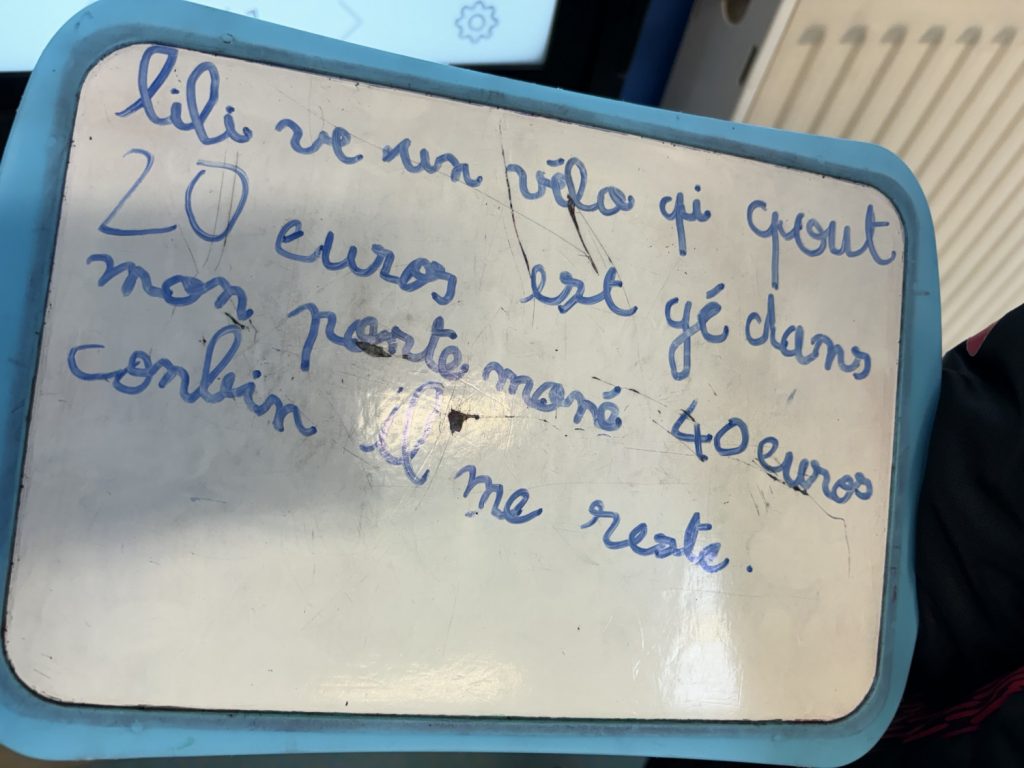 lili ve un vélo qi qout
20 euros est yé dans
mon porte moné 40 euros
conbin il me reste.